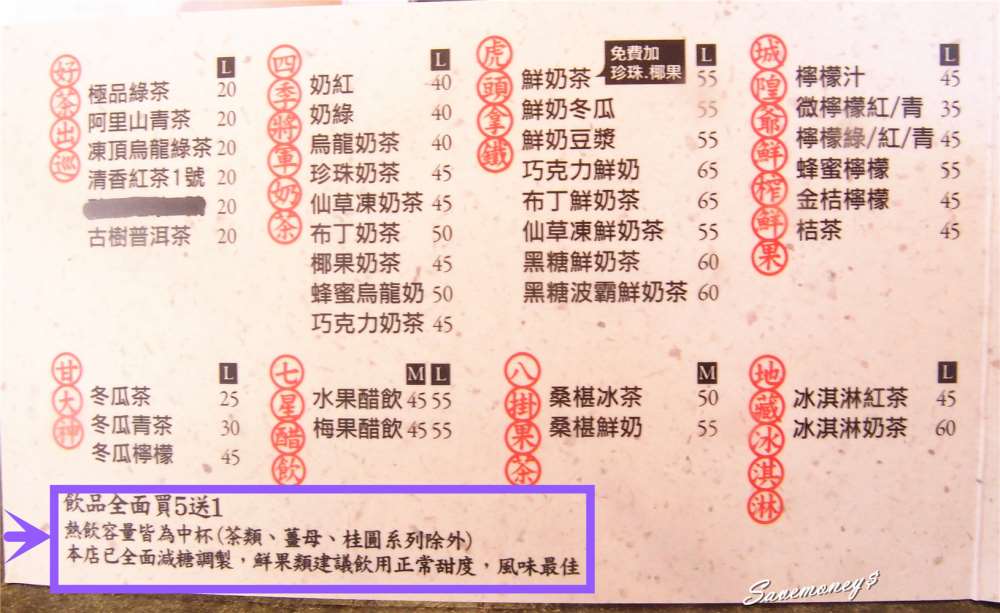 好茶出巡
L
極品綠茶 20
阿里山青茶 20
凍頂烏龍綠茶 20
清香紅茶1號 20
20
古樹普洱茶 20
四季將軍奶茶
L
奶紅 40
奶綠 40
烏龍奶茶 40
珍珠奶茶 45
仙草凍奶茶 45
布丁奶茶 50
椰果奶茶 45
蜂蜜烏龍奶 50
巧克力奶茶 45
虎頭拿鐵
免費加
珍珠.椰果
L
鮮奶茶 55
鮮奶冬瓜 55
鮮奶豆漿 55
巧克力鮮奶 65
布丁鮮奶茶 65
仙草凍鮮奶茶 55
黑糖鮮奶茶 60
黑糖波霸鮮奶茶 60
城隍爺鮮榨鮮果
L
檸檬汁 45
微檸檬紅/青 35
檸檬綠/紅/青 45
蜂蜜檸檬 55
金桔檸檬 45
桔茶 45
甘大神
L
冬瓜茶 25
冬瓜青茶 30
冬瓜檸檬 45
七星醋飲
M L
水果醋飲 45 55
梅果醋飲 45 55
八掛果茶
M
桑椹冰茶 50
桑椹鮮奶 55
地藏冰淇淋
L
冰淇淋紅茶 45
冰淇淋奶茶 60
飲品全面買5送1
熱飲容量皆為中杯(茶類、薑母、桂圓系列除外)
本店已全面減糖調製，鮮果類建議飲用正常甜度，風味最佳
Savemoney$